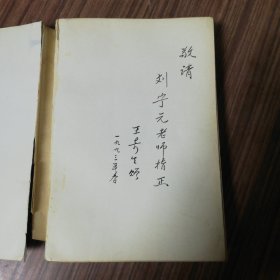 敬请
刘宁元老师指正
王寿生
一九九三年春